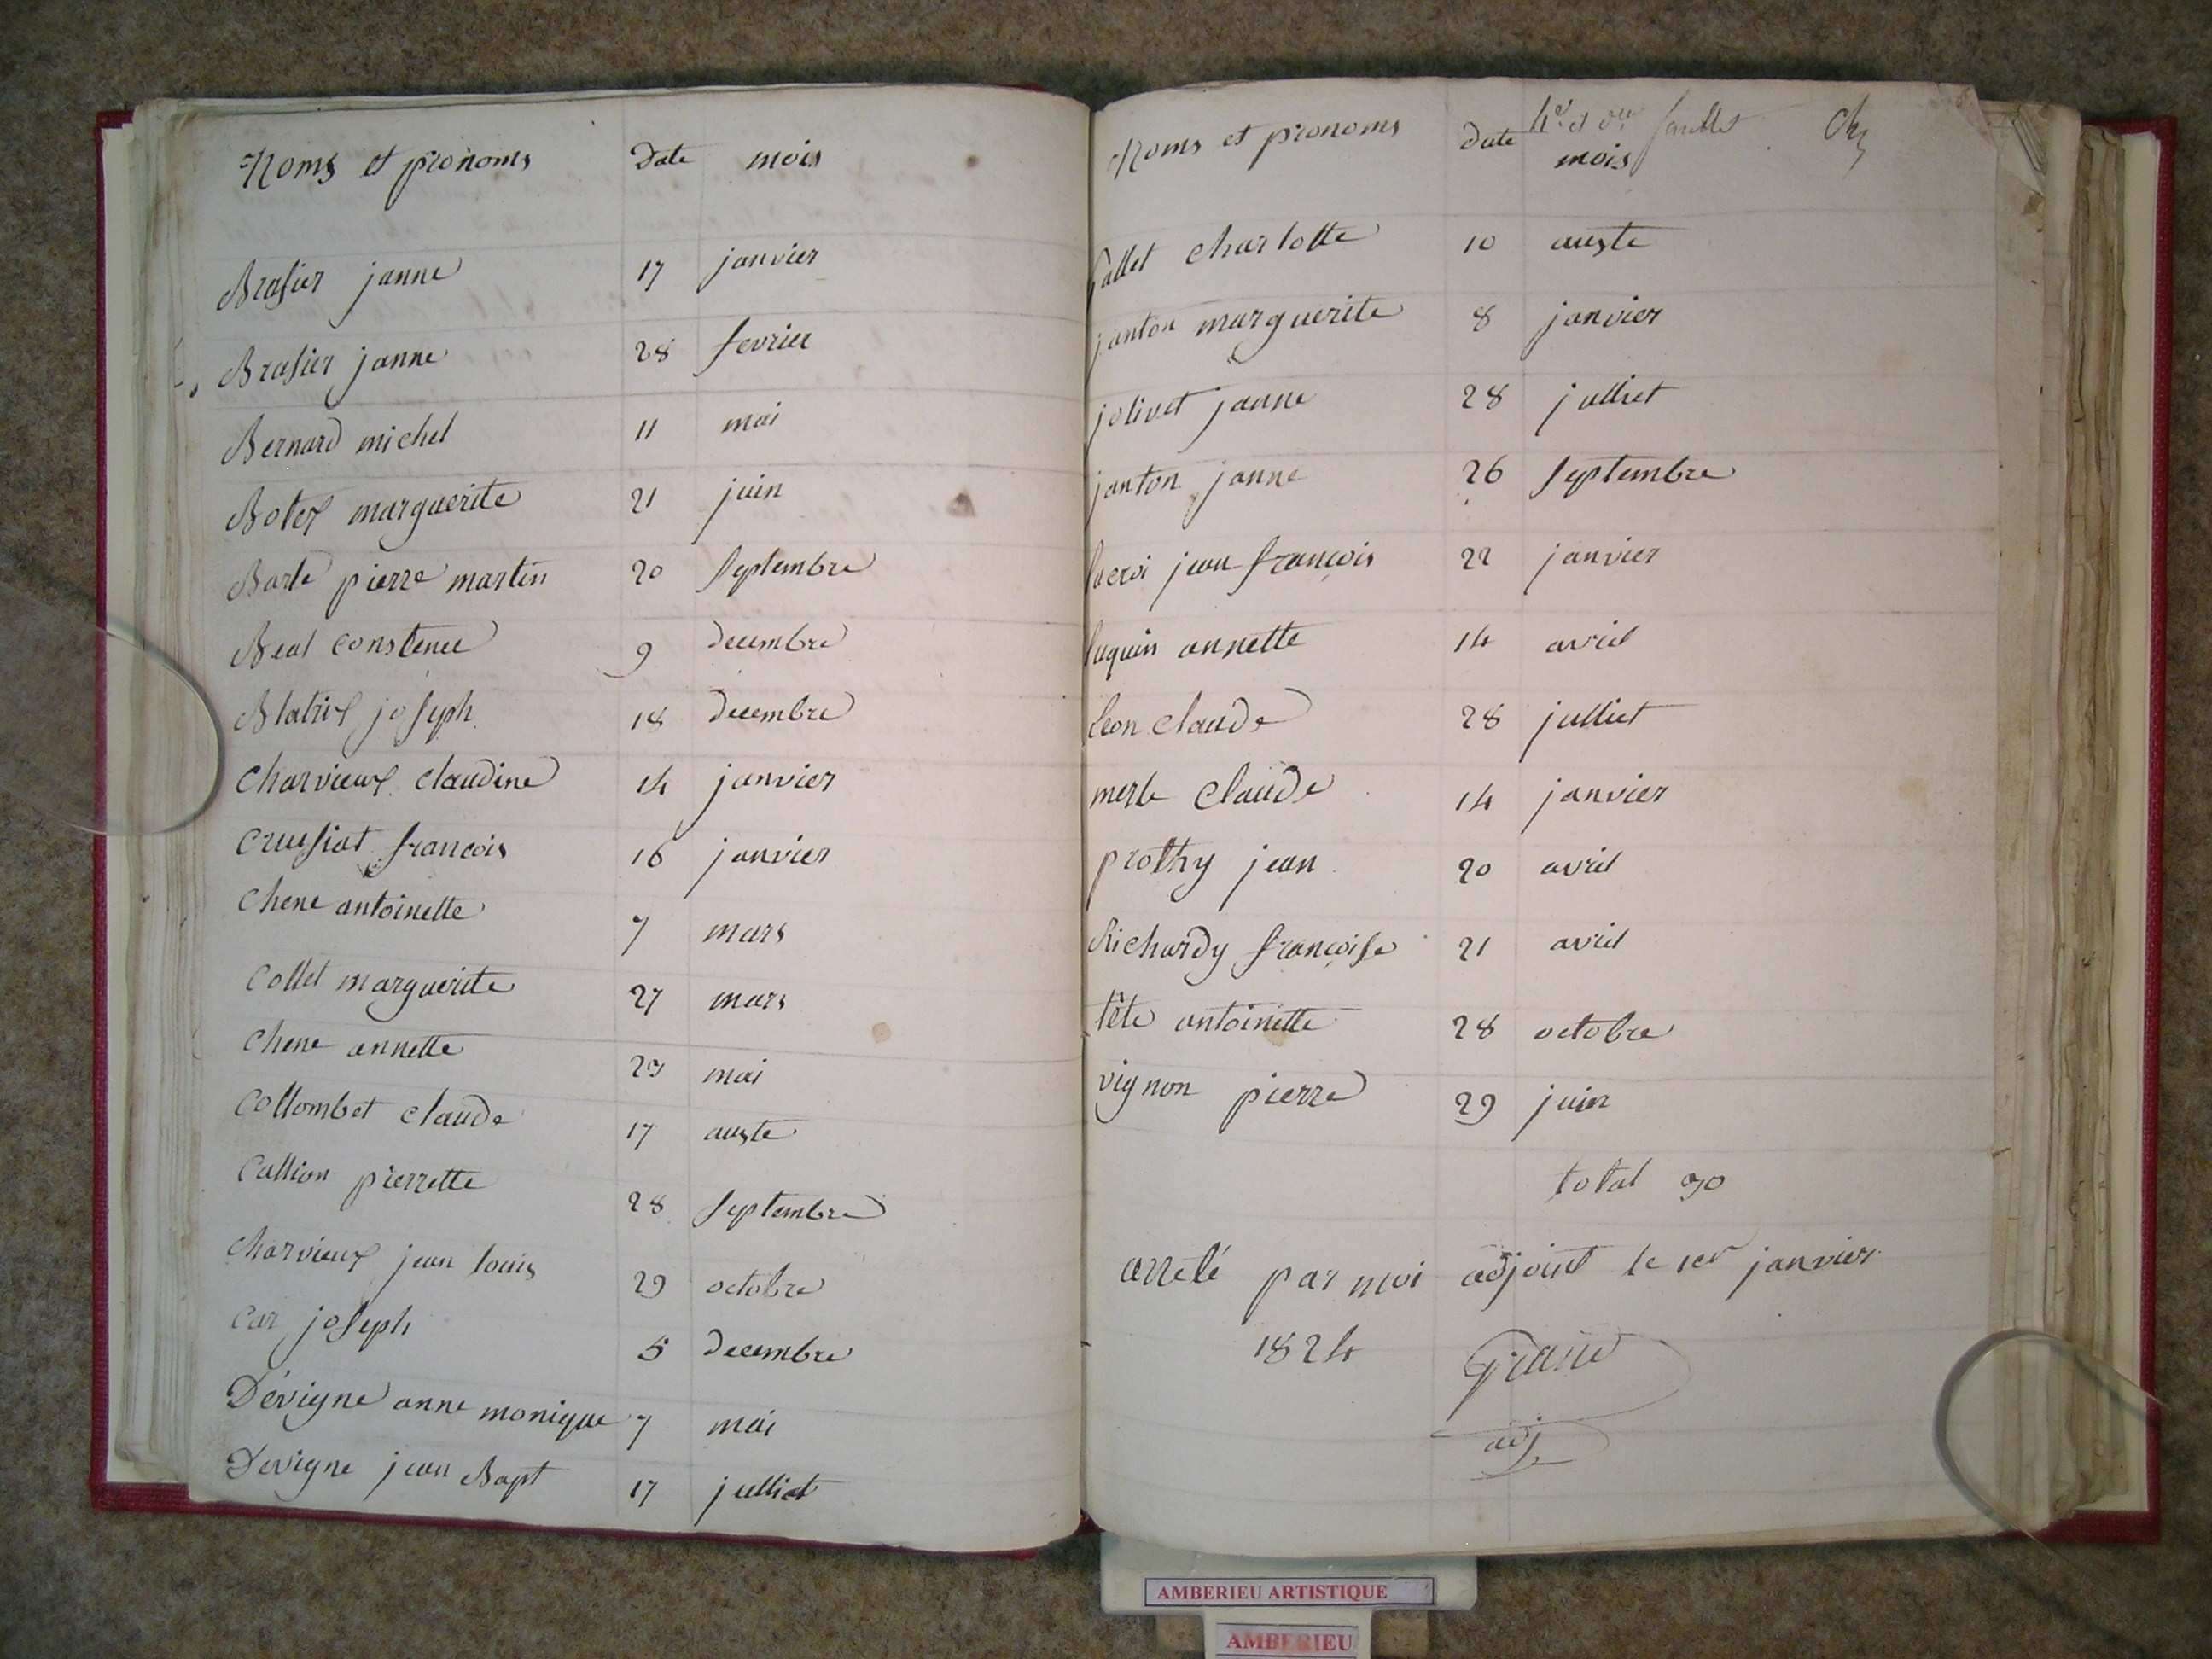 Noms et pronoms Date mois
Brasier janne 17 janvier
Brasier janne 28 fevrier
Bernard michel 11 mai
Botex marguerite 21 juin
Barle pierre martin 20 Septembre
Beal constence 9 decembre
Blatrix joseph 18 decembre
Charvieux claudine 14 janvier
Crussiat francois 16 janvier
Chene antoinette 7 mars
Collet marguerite 27 mars
Chene annette 29 mai
Collombet claude 17 auste
Callion pierrette 28 Septembre
Charvieux jean louis 29 octobre
Car joseph 5 decembre
Dévigne anne monique 7 mai
Devigne jean Bapt 17 julliet
Noms et pronoms Date mois
4e et feuillet
gallet Charlotte 10 auste
janton marguerite 8 janvier
jolivet janne 28 julliet
janton janne 26 Septembre
lacroi jean françois 22 janvier
luquin annette 14 avril
leon claude 28 julliet
merle claude 14 janvier
prothy jean 20 avril
Richardy françoise 21 avril
tête antoinette 28 octobre
vignon pierre 29 juin
total 30
arreté par moi adjoint le 1er janvier
1824
Grand
adj
AMBERIEU ARTISTIQUE
AMBERIEU